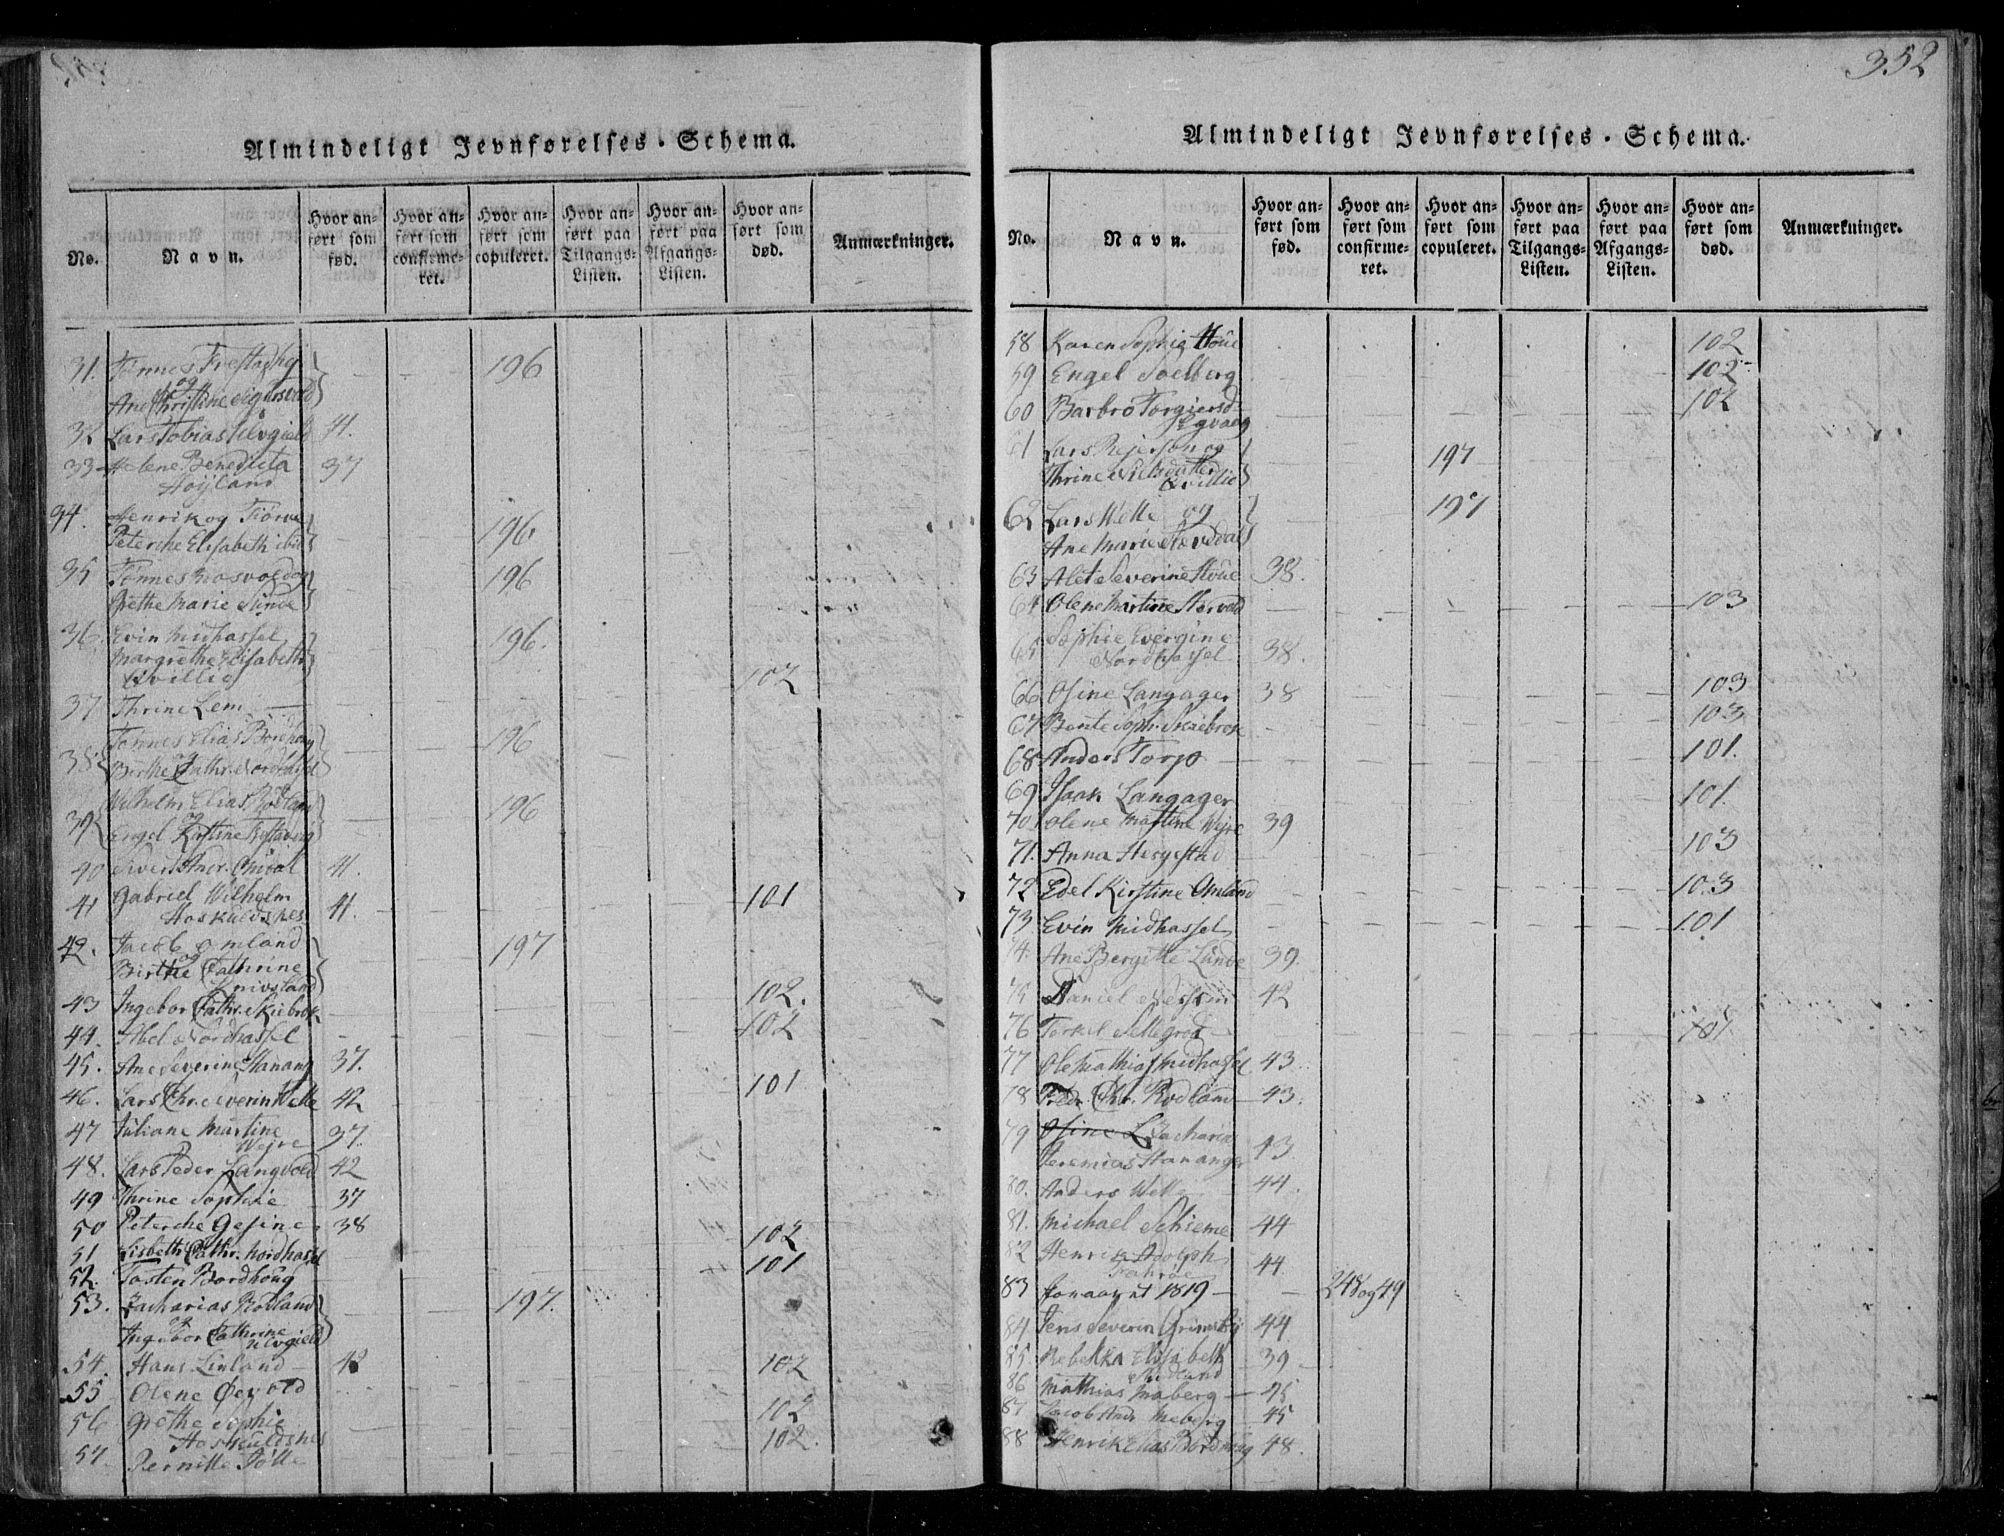 352
Almindeligt Jevnførelses-Schema.
No.
Navn.
Hvor anført som fød.
Hvor anført som confirmeret.
Hvor anført som copuleret.
Hvor anført paa Tilgangs-Listen.
Hvor anført paa Afgangs-Listen.
Hvor anført som død.
Anmærkninger.
31. Tønnes Frestadhg
og
Ane Christine Sigersvold 196
32 Lars Tobias Ulvgield 41.
33 Helene Benedicta
Høyland 37
34. Henrik og Tiørve
Peterche Elisabeth ibid 196
35 Tønnes Mosvold og
Grethe Marie Stinde 196
36. Evin Midhassel
Margrethe Elisabeth
Qvillio 196.
37 Thrine Lem 102
38 Tønnes Elias Bordhoug
og
Birthe Cathr. Nordhassel 196
39 Wilhelm Elias Rødland
og
Engel Kirstine Frestadhg 196
40 Sivert Andr. Omdal 41.
41 Gabriel Wilhelm
Hoskuldsnes 41. 101
42. Jacob Omland
og
Birthe Cathrine
Qnivsland 197
43 Ingebor Cathr. Skiebrok 102.
44. Abel Nordhassel 102
45. Ane Severine Hanang 37.
46. Lars Chr. Severin Welle 42 101
47 Juliane Martine
Wejre 37.
48. Lars Peder Langvold 42
49 Thrine Sophie 37
50 Peterche Gesine 38
51 Lisbeth Cathr. Nordhassel 102
52. Tosten Bordhoug 101
53. Zacharias Rødland
og
Ingebor Cathrine
Ulvgield 197.
54. Hans Linland 42 102
55 Olene Ørevold
56 Grethe Sophie
Hoskuldsnes 102
57. Pernille Tølle 102.
Almindeligt Jevnførelses-Schema.
No.
Navn.
Hvor anført som fød.
Hvor anført som confirmeret.
Hvor anført som copuleret.
Hvor anført paa Tilgangs-Listen.
Hvor anført paa Afgangs-Listen.
Hvor anført som død.
Anmærkninger.
58 Karen Sophie Houe 102
59 Engel Soelberg 102
60 Barbro Torgiersd
Egvaag 102
61 Lars Rejerson og
Thrine Nielsdatter
Qvillio 197
62 Lars Welle og
Ane Marie Størdal 197
63 Alet Severine Houe 38.
64 Olene Martine Horvold 103
65 Sophie Evergine
Nordhassel 38.
66 Osine Langager 38 103
67 Bente Soph. Skiebrok 103
68 Anders Torp 101.
69 Isaak Langager 101.
70 Olene Martine Wejre 39
71. Anna Hergestad 103
72 Edel Kirstine Omland 103
73 Evin Midhassel 101
74. Ane Bergitte Lunde 39.
75 Daniel Nersten 42
76 Torkel Sellegrod 101
77 Ole Mathias Midhassel 43.
78 Fredr. Chr. Rødland 43.
79 Osine L Zacharia
Jeremias Hananger 43.
80. Anders Welle 44.
81. Michael Schieme 44
82 Henrik Adolph
Farhøe 44.
83 for aaret 1819 248 og 49
84. Jens Severin Grimsby 44
85. Rebekka Elisabeth
Midland 39
86 Mathias Maberg 45
87 Jacob Andr Meberg 45
88 Henrik Elias Bordhoug 48.